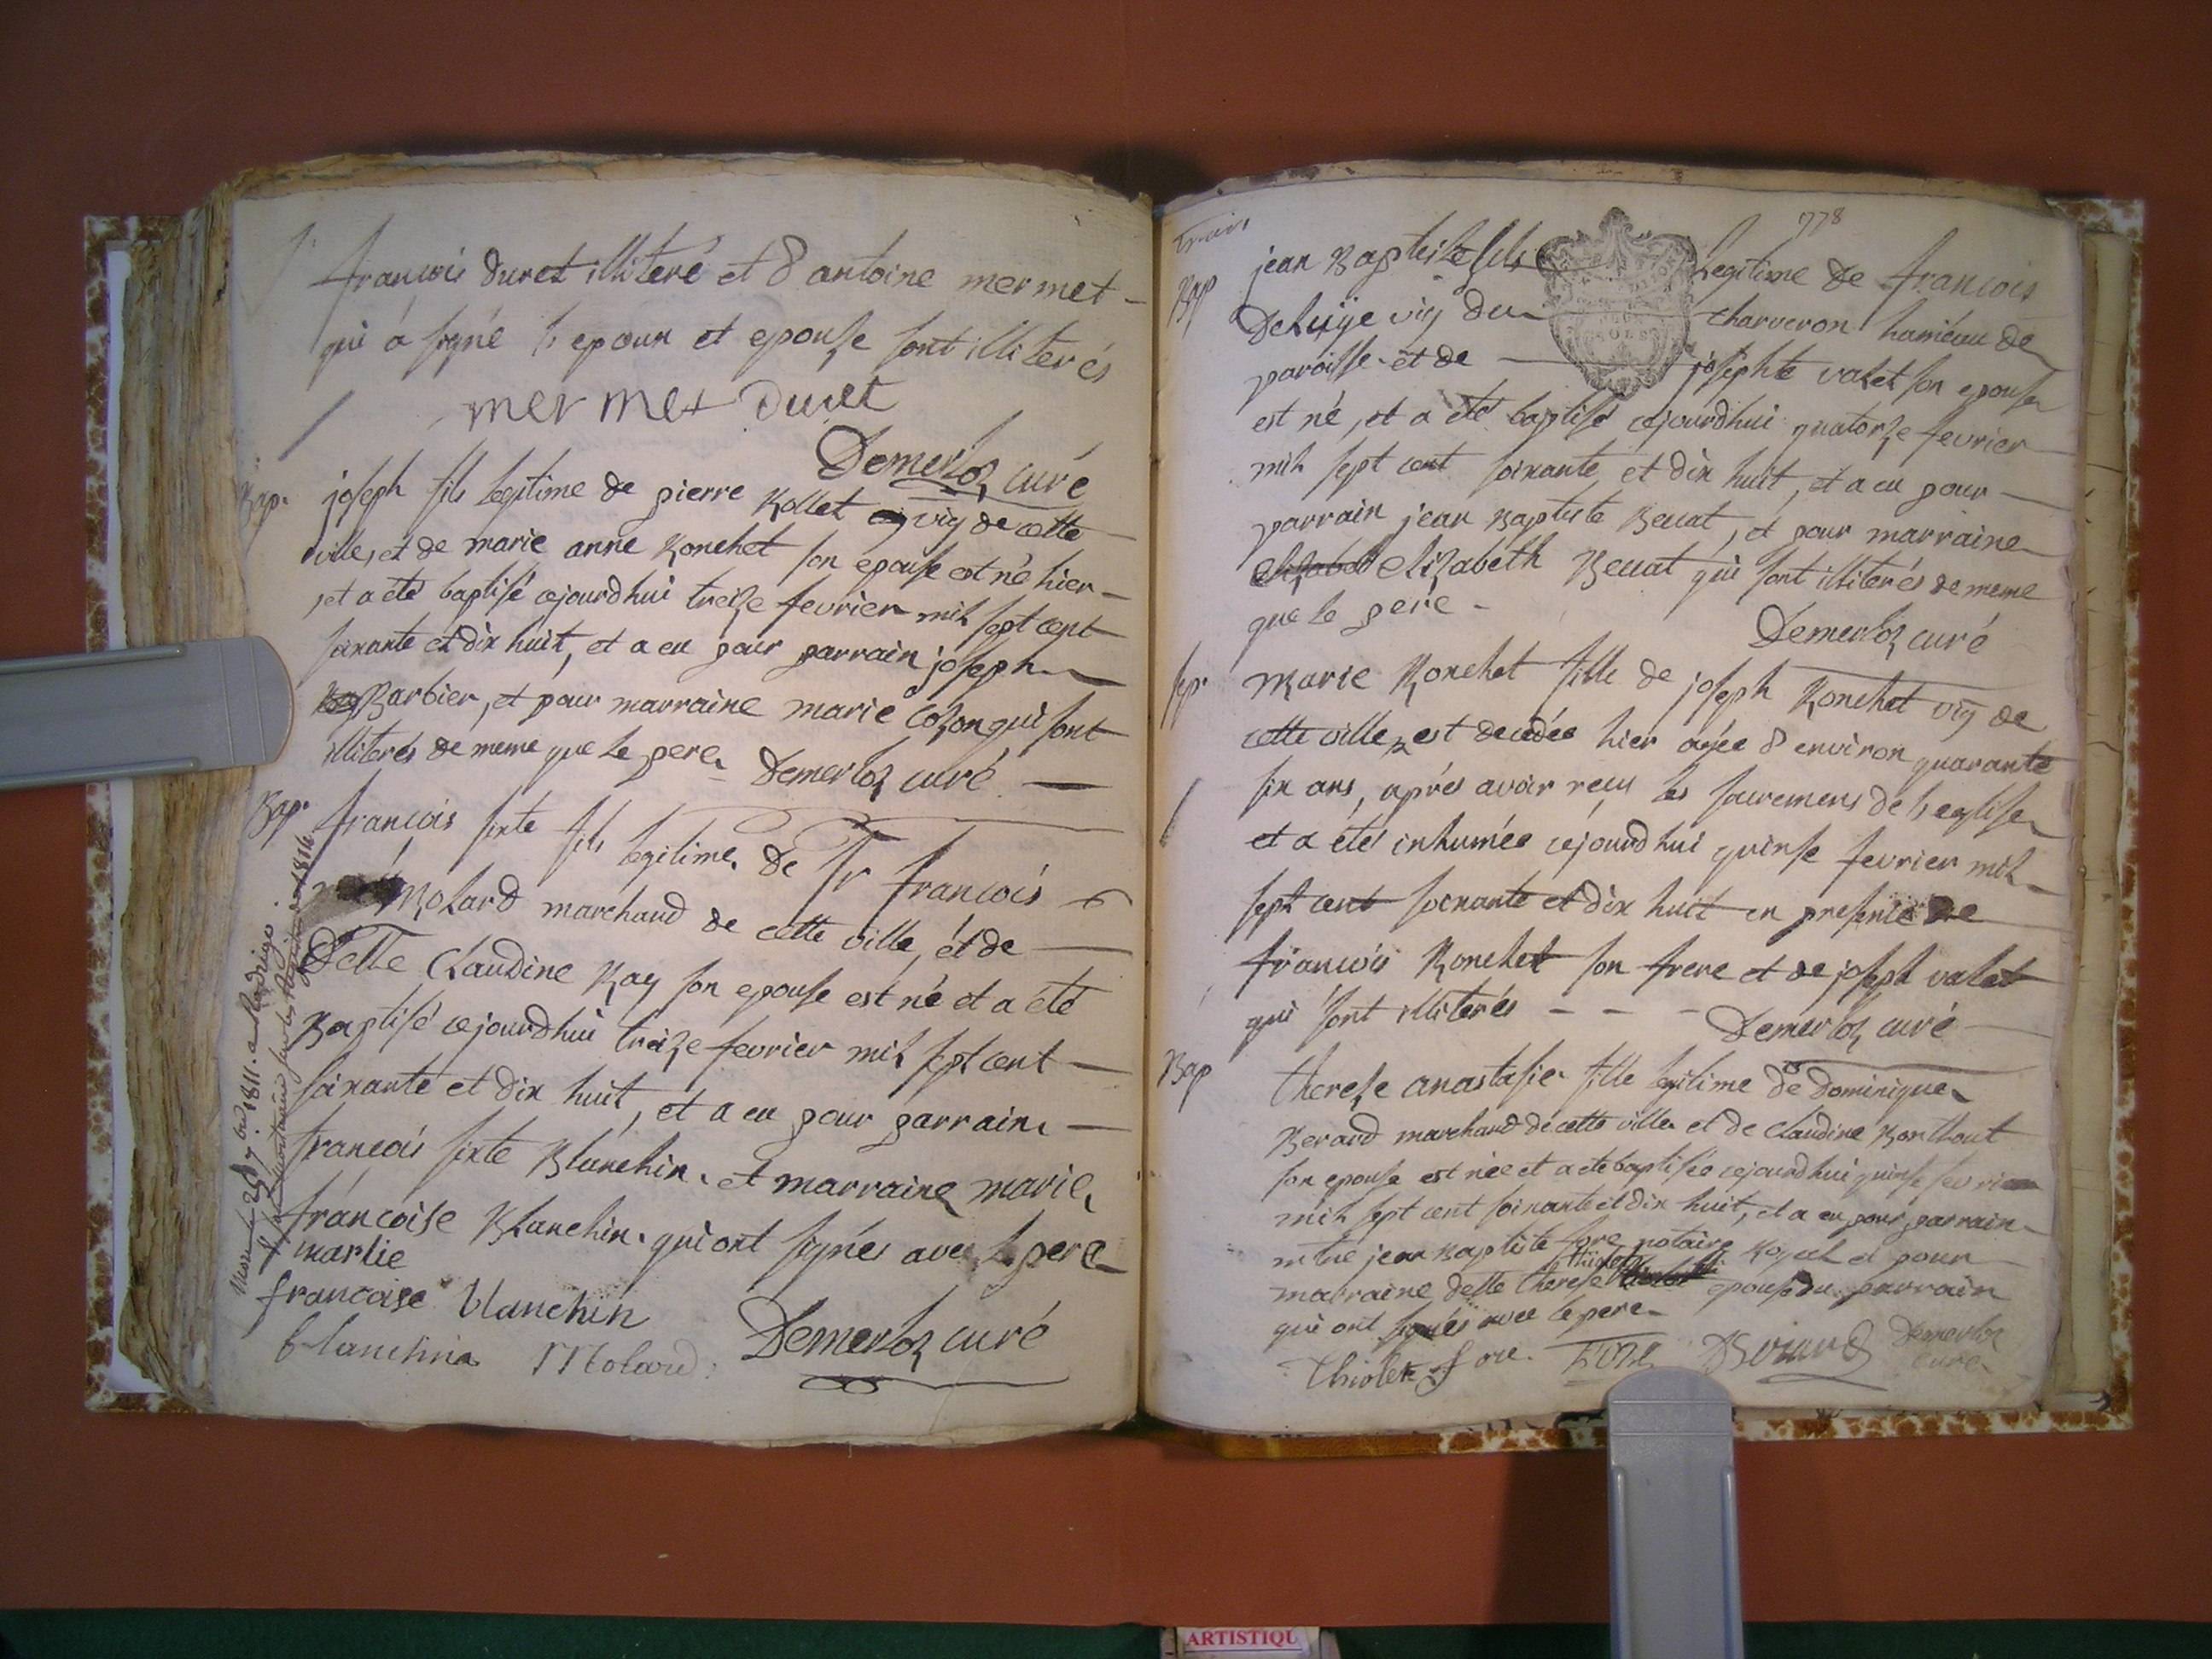 francois duret illiteré et d antoine mermet
qui à signé l epoux et epouse sont illiterés
mermet duret
Demerloz curé
Bap. joseph fils legitime de pierre Rollet vig de cette
ville, et de marie anne Ronchet son epouse est né hier
et a eté baptisé cejourdhui treize fevrier mil sept cent
soixante et dix huit, et a eu pour parrain joseph
Barbier, et pour marraine marie Cozon qui sont
illiterés de meme que le pere. Demerloz curé
Bap. francois sixte fils legitime de Sr francois
Molard marchand de cette ville, et de
Delle Claudine Ray son epouse est né et a été
Baptisé cejourdhui treize fevrier mil sept cent
soixante et dix huit, et a eu pour parrain
francois sixte Blanchin et marraine marie
francoise Blanchin qui ont signés avec le pere
marlie
francoise blanchin
blanchin Molard Demerloz curé
778
trois
Bap jean Baptiste fils legitime de francois
Deluye vig du charveron hameau de
paroisse et de josephte valet son epouse
est né, et a eté baptisé cejourdhui quatorze fevrier
mil sept cent soixante et dix huit, et a eu pour
parrain jean Baptiste Beuat, et pour marraine
elizabet elizabeth Beuat qui sont illiterés de meme
que le pere
Demerloz curé
sep. Marie Ronchet fille de joseph Ronchet vig de
cette ville, est decedée hier agée d environ quarante
six ans, aprés avoir reçu les sacremens de l eglise
et a été inhumée cejourd hui quinse fevrier mil
sept cent soixante et dix huit en presence de
francois Ronchet son frere et de joseph valet
qui sont illiterés - - - Demerloz curé
Bap therese anastasie fille legitime de Dominique
Berard marchand de cette ville et de Claudine Bonthout
son epouse est née et a eté baptisée cejourdhui quinse fevrier
mil sept cent soixante et dix huit, et a eu pour parrain
mtre jean Baptiste fore notaire Royal et pour
marraine delle therese thiolet epouse du parrain
qui ont signés avec le pere
thiolet fore fore DBerard Demerloz
curé
ARTISTIQU